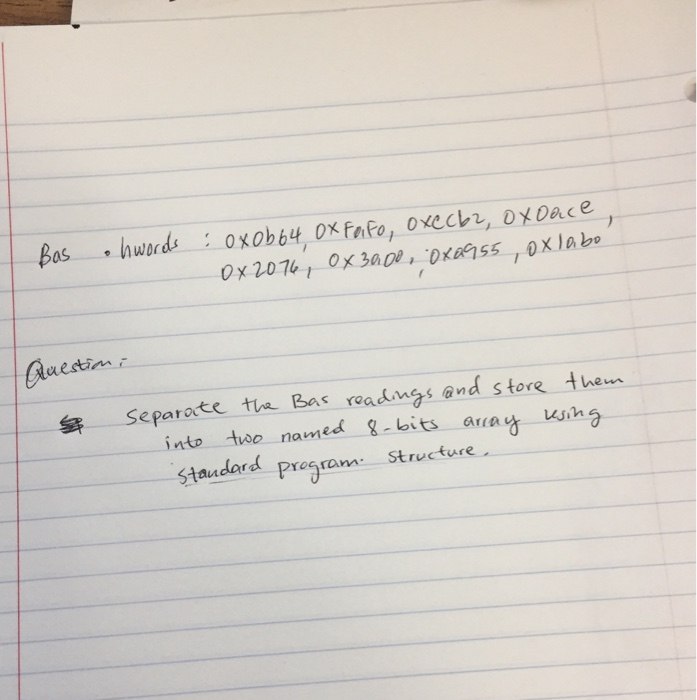 Bas .hwords : 0x0b64, 0xFaF0, 0xccb2, 0x0ace,
0x2076, 0x3a00, 0xa955, 0x1ab0
Question:
Separate the Bas readings and store them
into two named 8-bits array using
standard program structure.